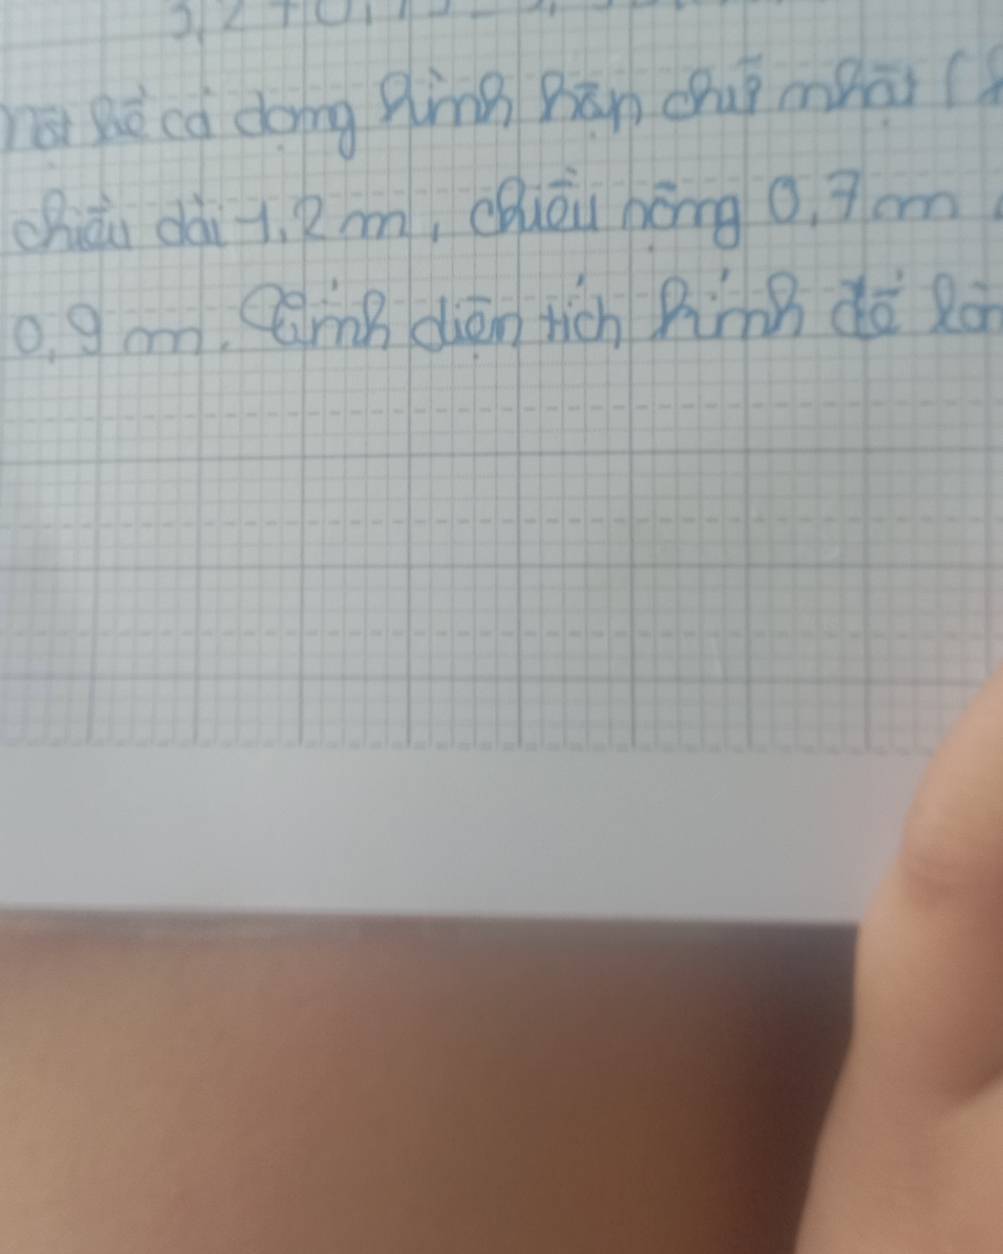 có dạng hình hộp chữ nhật (
chiều dài 1,2 m, chiều rộng 0,7 m
0,9 m. Tính diện tích kính để